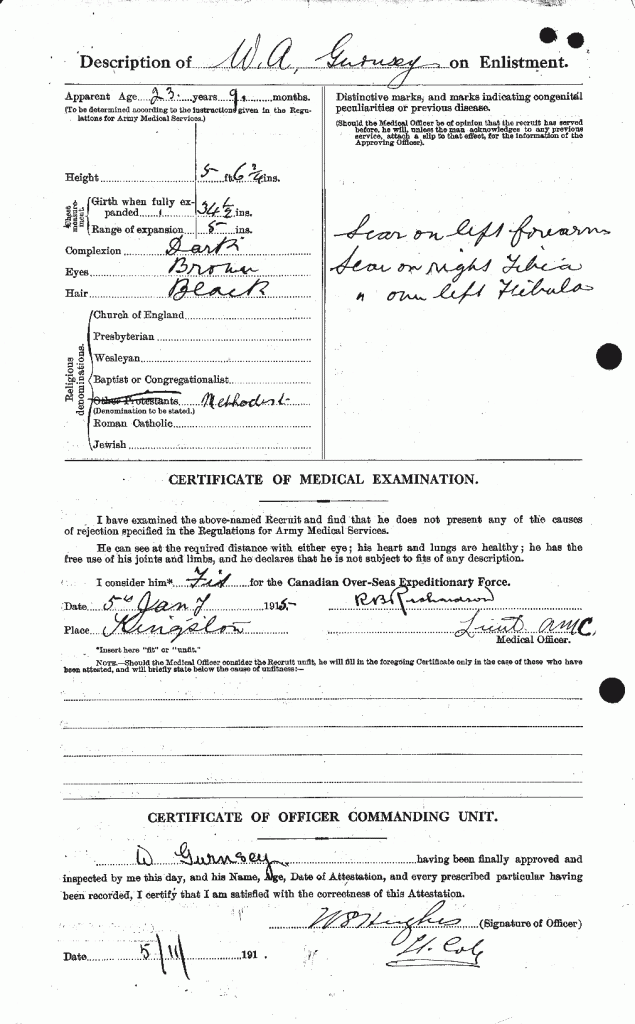 Description of W. A. Gurnsey on Enlistment.
Apparent Age 23 years 9 months.
(To be determined according to the instructions given in the Regulations for Army Medical Services.)
Height 5 ft. 6 3/4 ins.
Chest measurement.
Girth when fully expanded 34 1/2 ins.
Range of expansion 5 ins.
Complexion Dark
Eyes Brown
Hair Black
Religious denominations.
Church of England
Presbyterian
Wesleyan
Baptist or Congregationalist
Other Protestants Methodist
(Denomination to be stated.)
Roman Catholic
Jewish
Distinctive marks, and marks indicating congenital
peculiarities or previous disease.
(Should the Medical Officer be of opinion that the recruit has served
before, he will, unless the man acknowledges to any previous
service, attach a slip to that effect, for the information of the
Approving Officer).
Scar on left forearm
Scar on right Tibia
" on left Fibula
CERTIFICATE OF MEDICAL EXAMINATION.
I have examined the above-named Recruit and find that he does not present any of the causes
of rejection specified in the Regulations for Army Medical Services.
He can see at the required distance with either eye; his heart and lungs are healthy; he has the
free use of his joints and limbs, and he declares that he is not subject to fits of any description.
I consider him* Fit for the Canadian Over-Seas Expeditionary Force.
Date 5th Jany 1915 R B Richardson
Place Kingston Lieut AMC
Medical Officer.
*Insert here "fit" or "unfit."
NOTE.—Should the Medical Officer consider the Recruit unfit, he will fill in the foregoing Certificate only in the case of those who have
been attested, and will briefly state below the cause of unfitness:—
CERTIFICATE OF OFFICER COMMANDING UNIT.
W Gurnsey having been finally approved and
inspected by me this day, and his Name, Age, Date of Attestation, and every prescribed particular having
been recorded, I certify that I am satisfied with the correctness of this Attestation.
W S Hughes (Signature of Officer)
Lt. Col.
Date 5/11 191 .